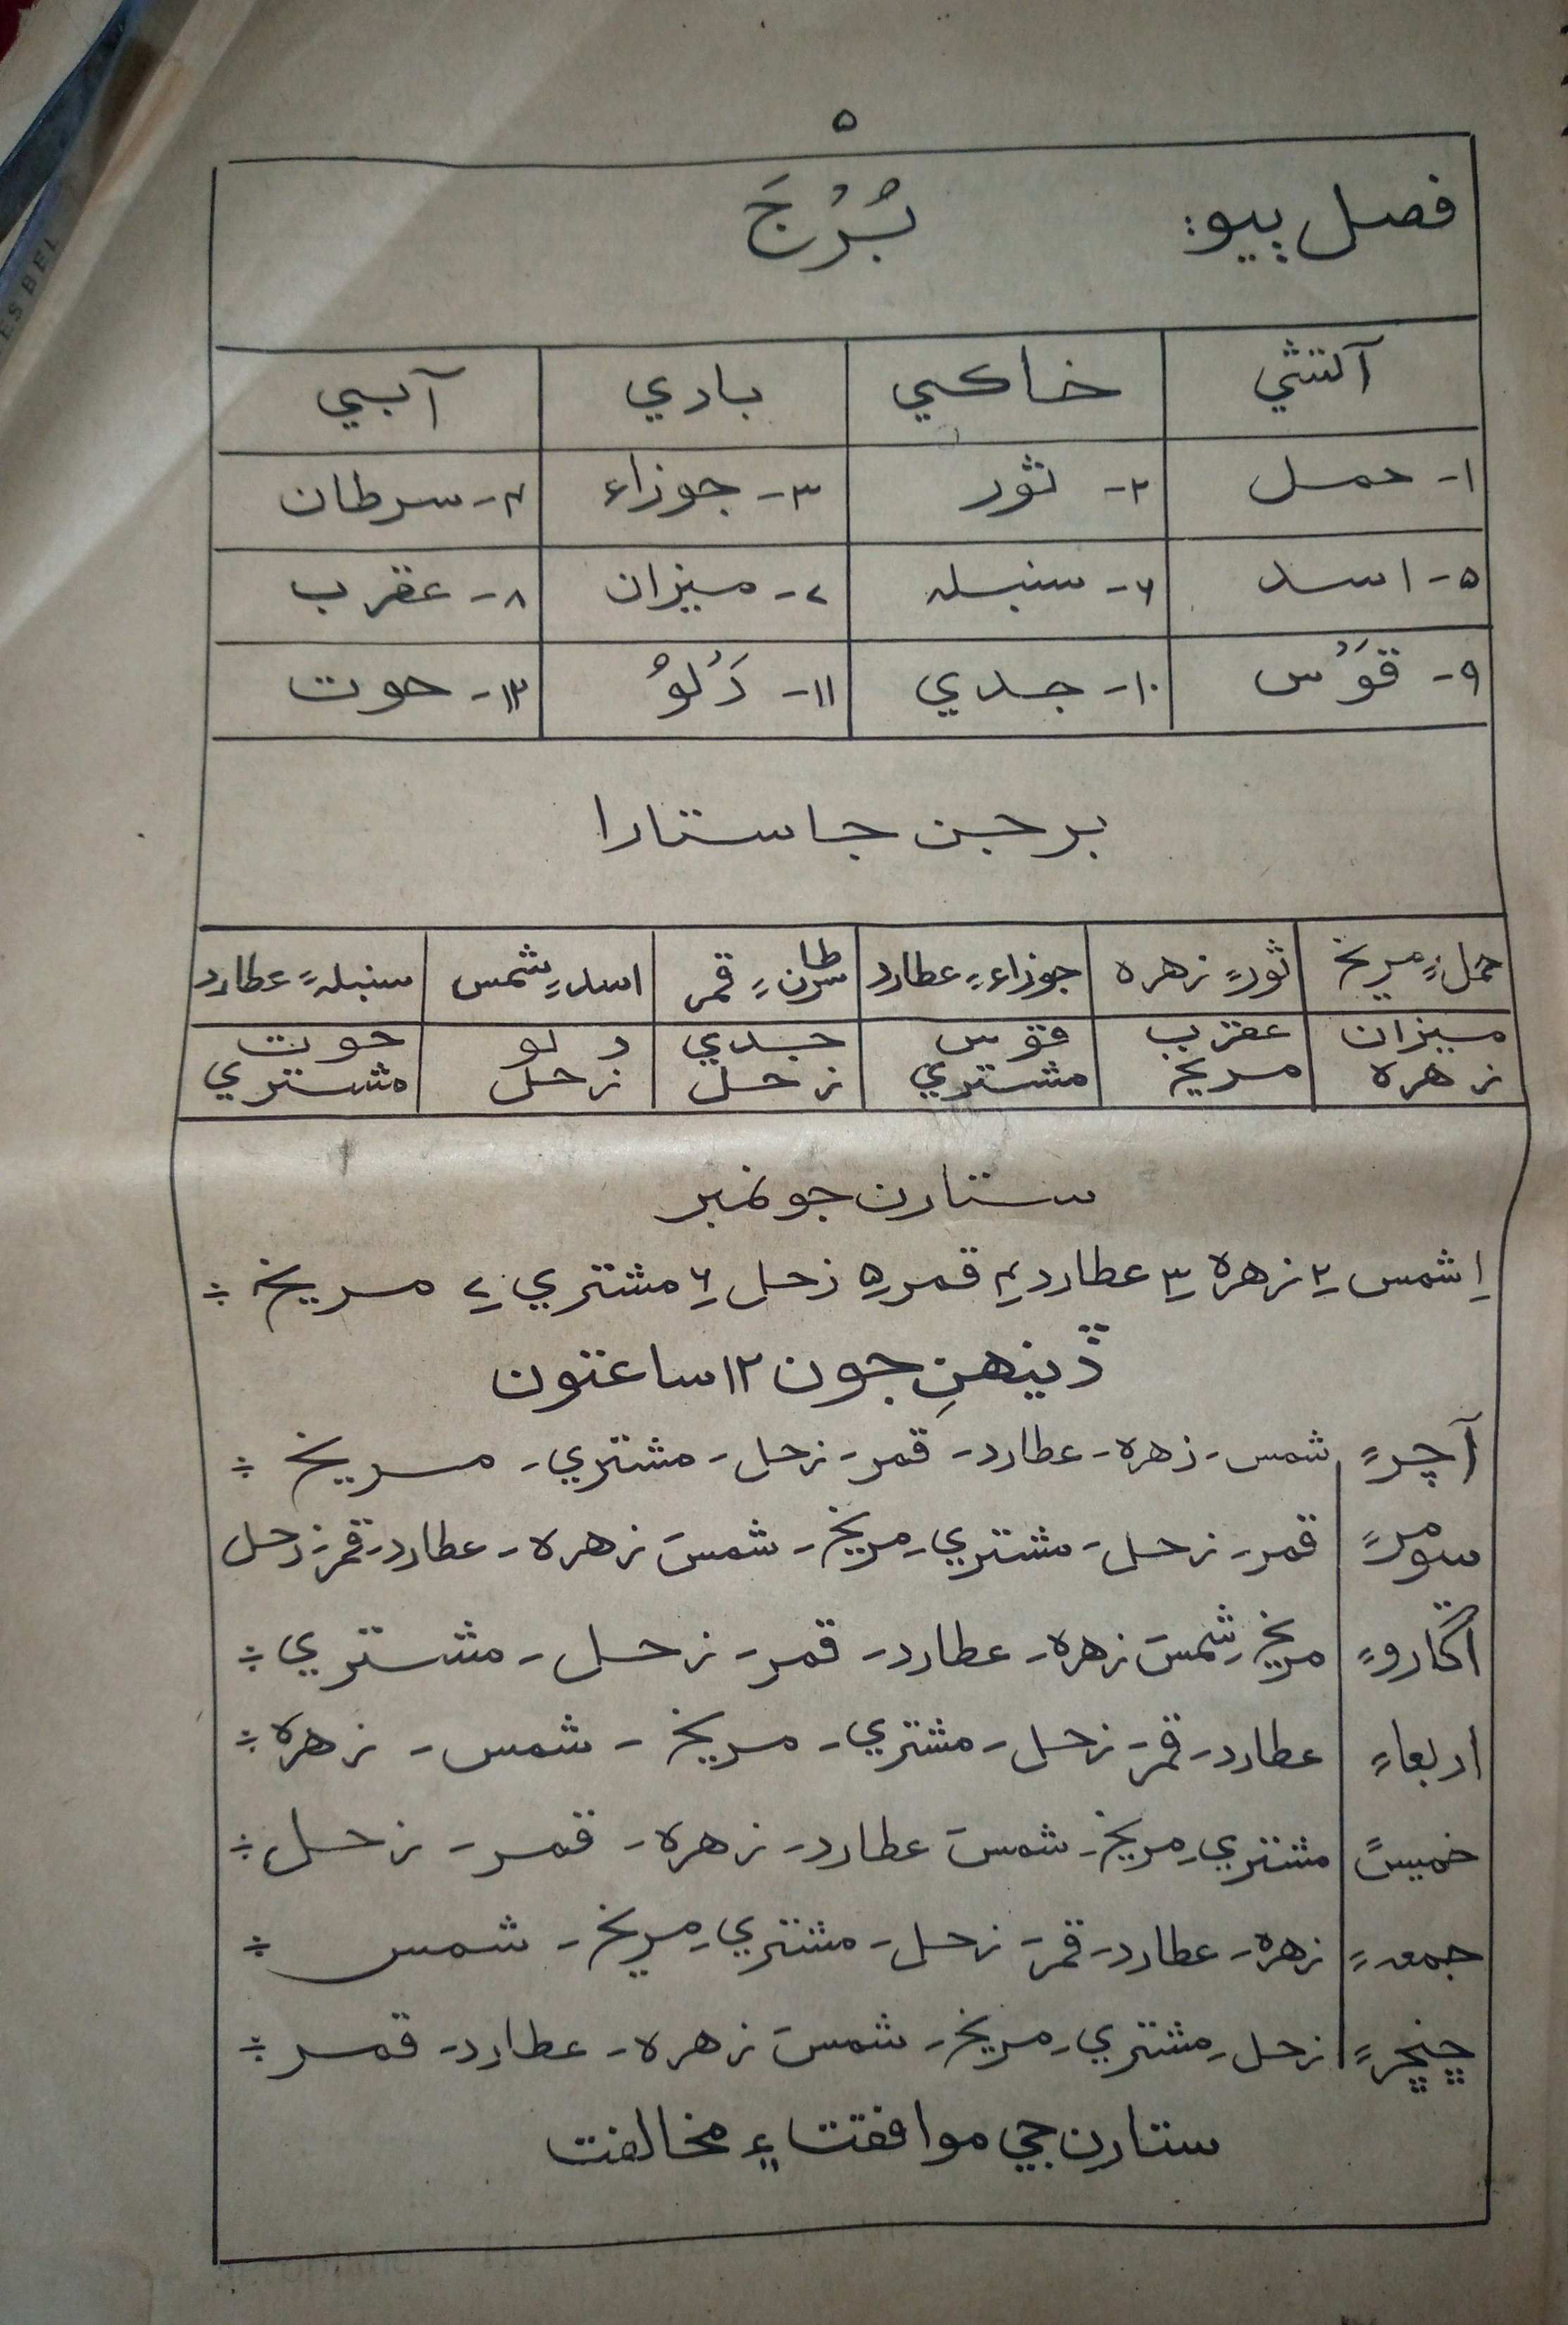 ۵
فصل ٻيو: بُرُجَ
آتشي خاڪي بادي آبي
۱- حمل ۲- ثور ۳- جوزاء ۴- سرطان
۵- اسد ۶- سنبله ۷- ميزان ۸- عقرب
۹- قوَس ۱۰- جدي ۱۱- دَلوُ ۱۲- حوت
برجن جا ستارا
حمل۽ مريخ ثور۽ زهره جوزاء۽ عطارد سرطان۽ قمر اسد۽ شمس سنبله۽ عطارد
ميزان عقرب قوس جدي دلو حوت
زهره مريخ مشتري زحل زحل مشتري
ستارن جو نمبر
۱ شمس ۲ زهره ۳ عطارد ۴ قمر ۵ زحل ۶ مشتري ۷ مريخ ÷
ڏينهنِ جون ۱۲ ساعتون
آچر۽ شمس- زهره- عطارد- قمر- زحل- مشتري- مريخ ÷
سومر۽ قمر- زحل- مشتري- مريخ- شمس- زهره- عطارد- قمر- زحل
اڱارو۽ مريخ- شمس- زهره- عطارد- قمر- زحل- مشتري ÷
اربعا۽ عطارد- قمر- زحل- مشتري- مريخ- شمس- زهره ÷
خميس۽ مشتري- مريخ- شمس- عطارد- زهره- قمر- زحل ÷
جمعه۽ زهره- عطارد- قمر- زحل- مشتري- مريخ- شمس ÷
ڇنڇر۽ زحل- مشتري- مريخ- شمس- زهره- عطارد- قمر ÷
ستارن جي موافقت ۽ مخالفت